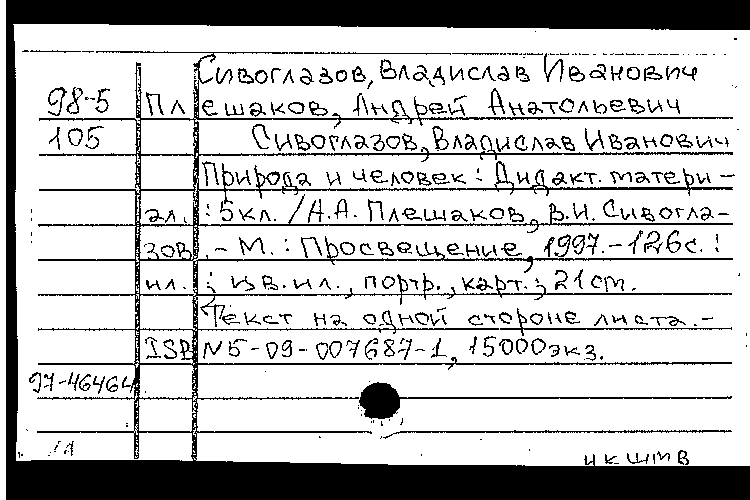 Сивоглазов, Владислав Иванович
98-5 Плешаков, Андрей Анатольевич
105 Сивоглазов, Владислав Иванович
Природа и человек : Дидакт. матери-
ал. : 5 кл. / А.А. Плешаков, В.И. Сивогла-
зов. - М. : Просвещение, 1997. - 126 с. :
ил. ; цв. ил., портр., карт. ; 21 cm.
Текст на одной стороне листа. -
ISBN 5-09-007687-1, 15000 экз.
97-46464